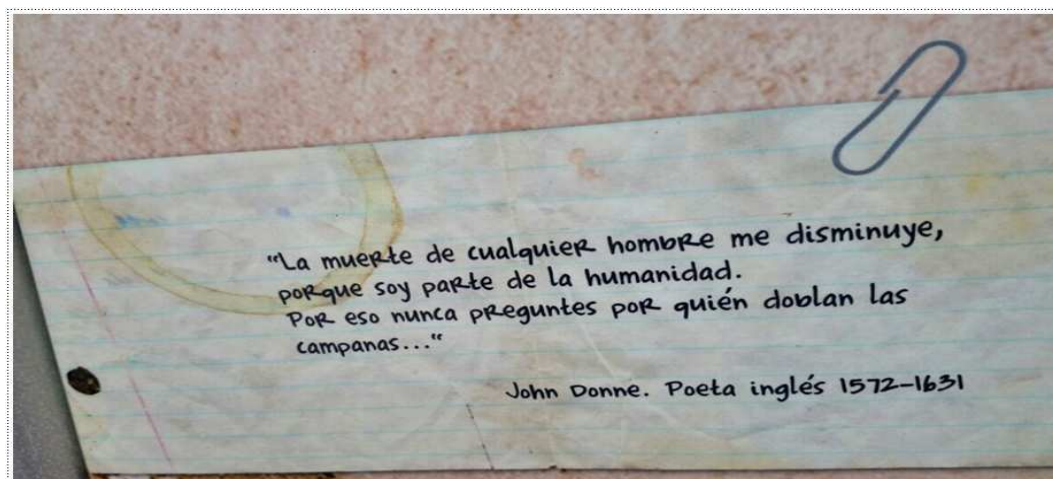 “La muerte de cualquier hombre me disminuye,
porque soy parte de la humanidad.
Por eso nunca preguntes por quién doblan las
campanas...“
John Donne. Poeta inglés 1572-1631